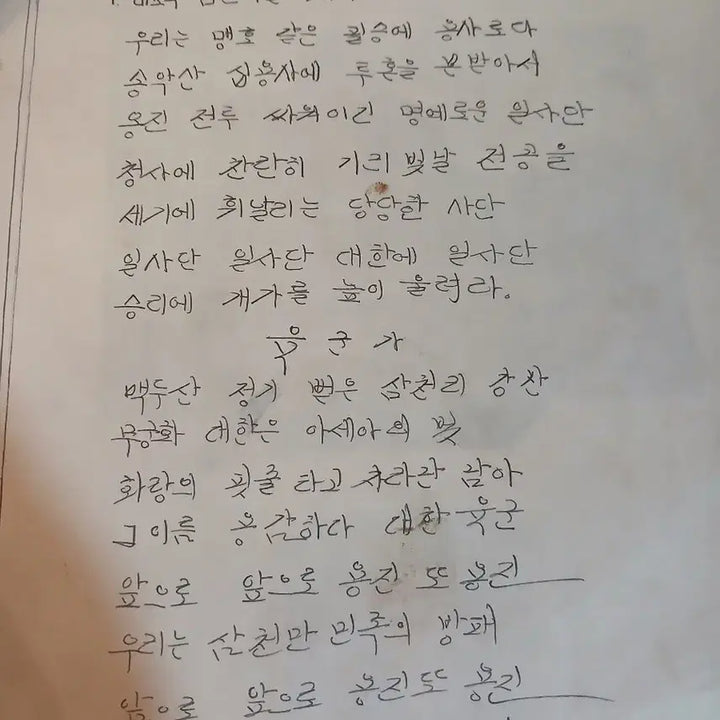 우리는 맹호 같은 필승에 용사로다
송악산 십용사에 투혼을 본받아서
용진 전투 싸워이긴 명예로운 일사단
청사에 찬란히 기리 빛날 전공을
세기에 휘날리는 당당한 사단
일사단 일사단 대한에 일사단
승리에 개가를 높이 울려라.
육군가
백두산 정기 뻗은 삼천리 강산
무궁화 대한은 아세아의 빛
화랑의 핏줄 타고 자라난 남아
그이름 용감하다 대한육군
앞으로 앞으로 용진 또 용진
우리는 삼천만 민족의 방패
앞으로 앞으로 용진 또 용진